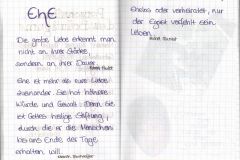 EhE
Die große Liebe erkennt man
nicht an ihrer Stärke,
sondern an ihrer Dauer.
Ehe ist mehr als eure Liebe
zueinander. Sie hat höhere
Würde und Gewalt. Denn sie
ist Gottes heilige Stiftung,
durch die er die Menschen
bis ans Ende der Tage
erhalten will.
Ehelos oder verheiratet, nur
der Egoist verfehlt sein
Leben.